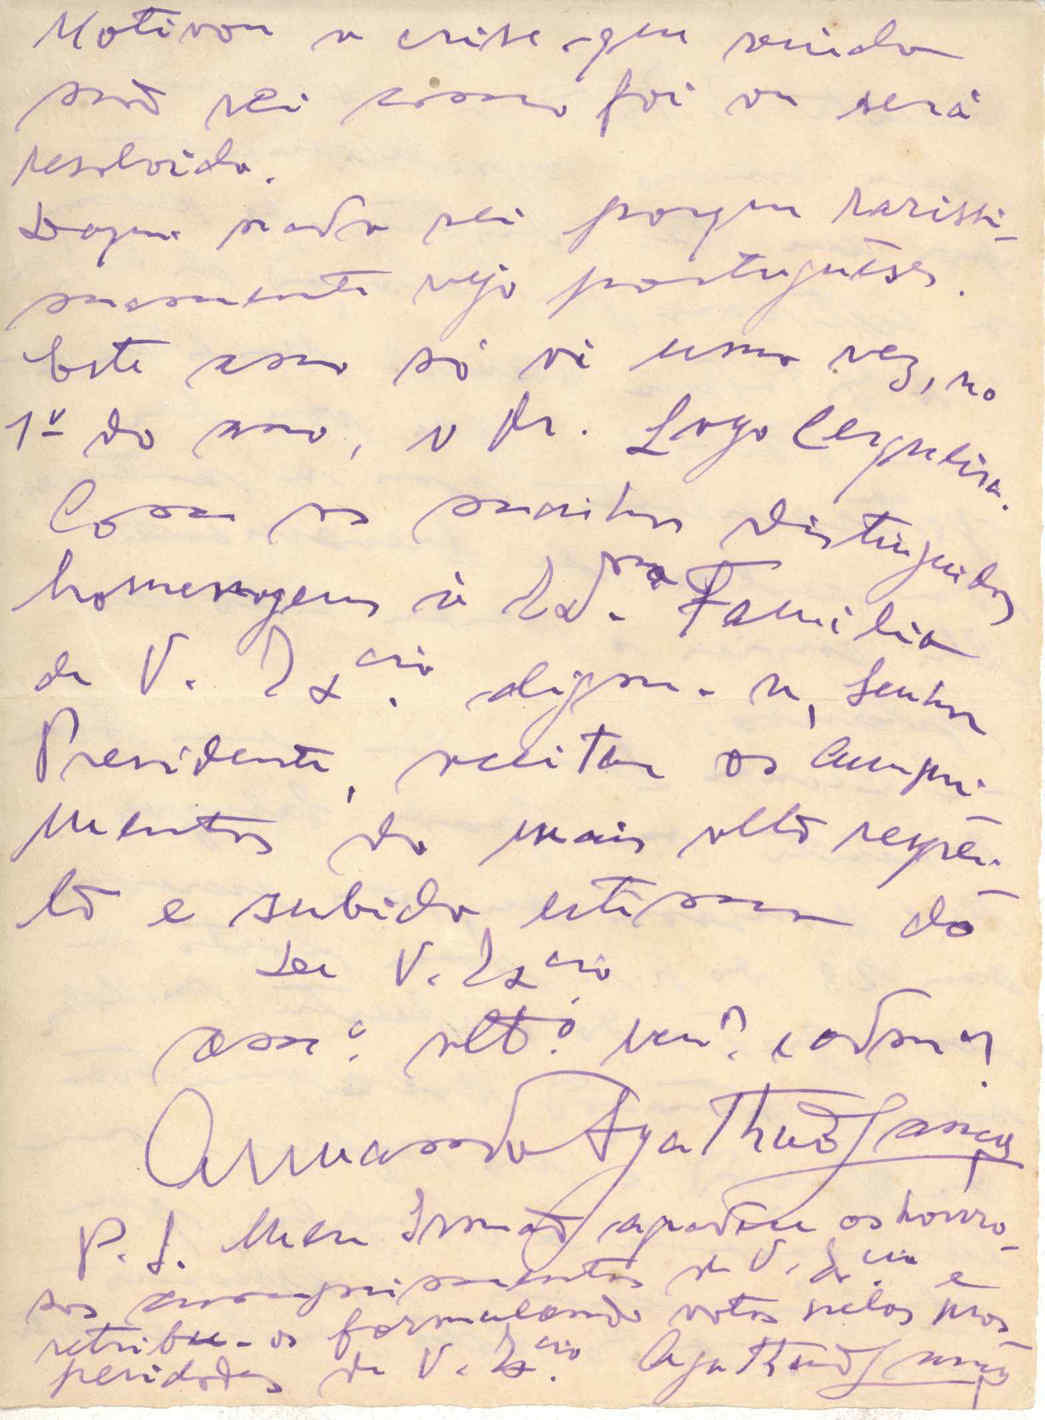 Motivou a crise que ainda
não sei como foi ou será
resolvida.
Daqui nada sei porque rarissi-
mamente vejo portuguêses.
Este ano só vi uma vez, no
1º do ano, o Dr. Lago Cerqueira.
Com as muito distinguidas
homenagens à Exma. Familia
de V. Excia. digne-se, Senhor
Presidente, aceitar os cumpri
mentos do mais alto respei-
to e subida estima do
De V. Excia
amº. attº. venʳ. e admºʳ.
Armando Agatão Lança
P. S. Meu Irmão agradece os honro-
sos cumprimentos de V. Excia e
retribue-os formulando votos pelas pros
peridades de V. Excia. Agatão Lança